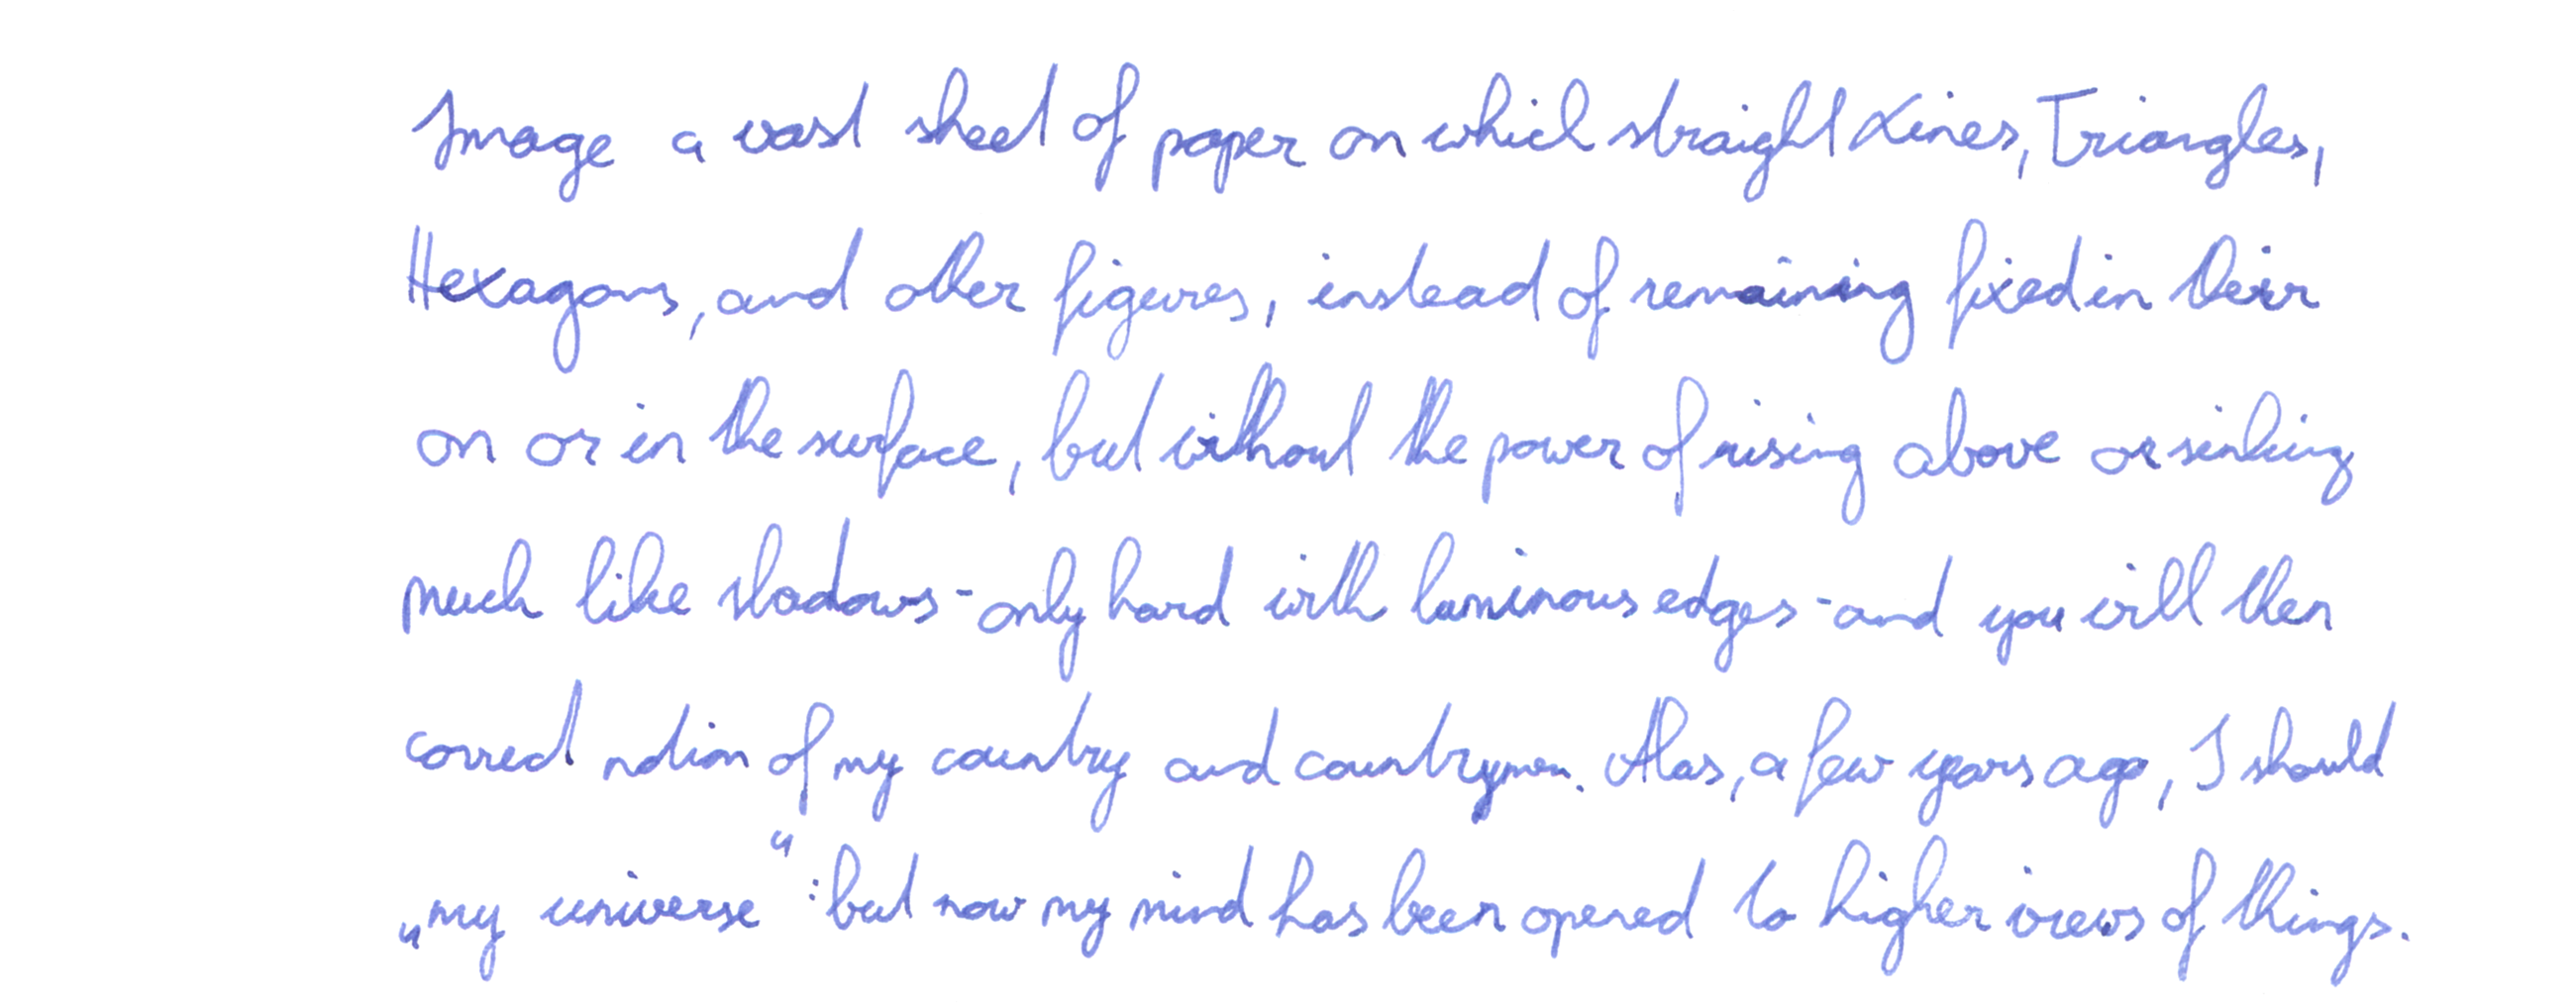 Image a vast sheet of paper on which straight Lines, Triangles,
Hexagons, and other figures, instead of remaining fixed in their
on or in the surface, but without the power of rising above or sinking
much like shadows - only hard with luminous edges - and you will then
correct notion of my country and countrymen. Alas, a few years ago, I should
„my universe“: but now my mind has been opened to higher views of things.